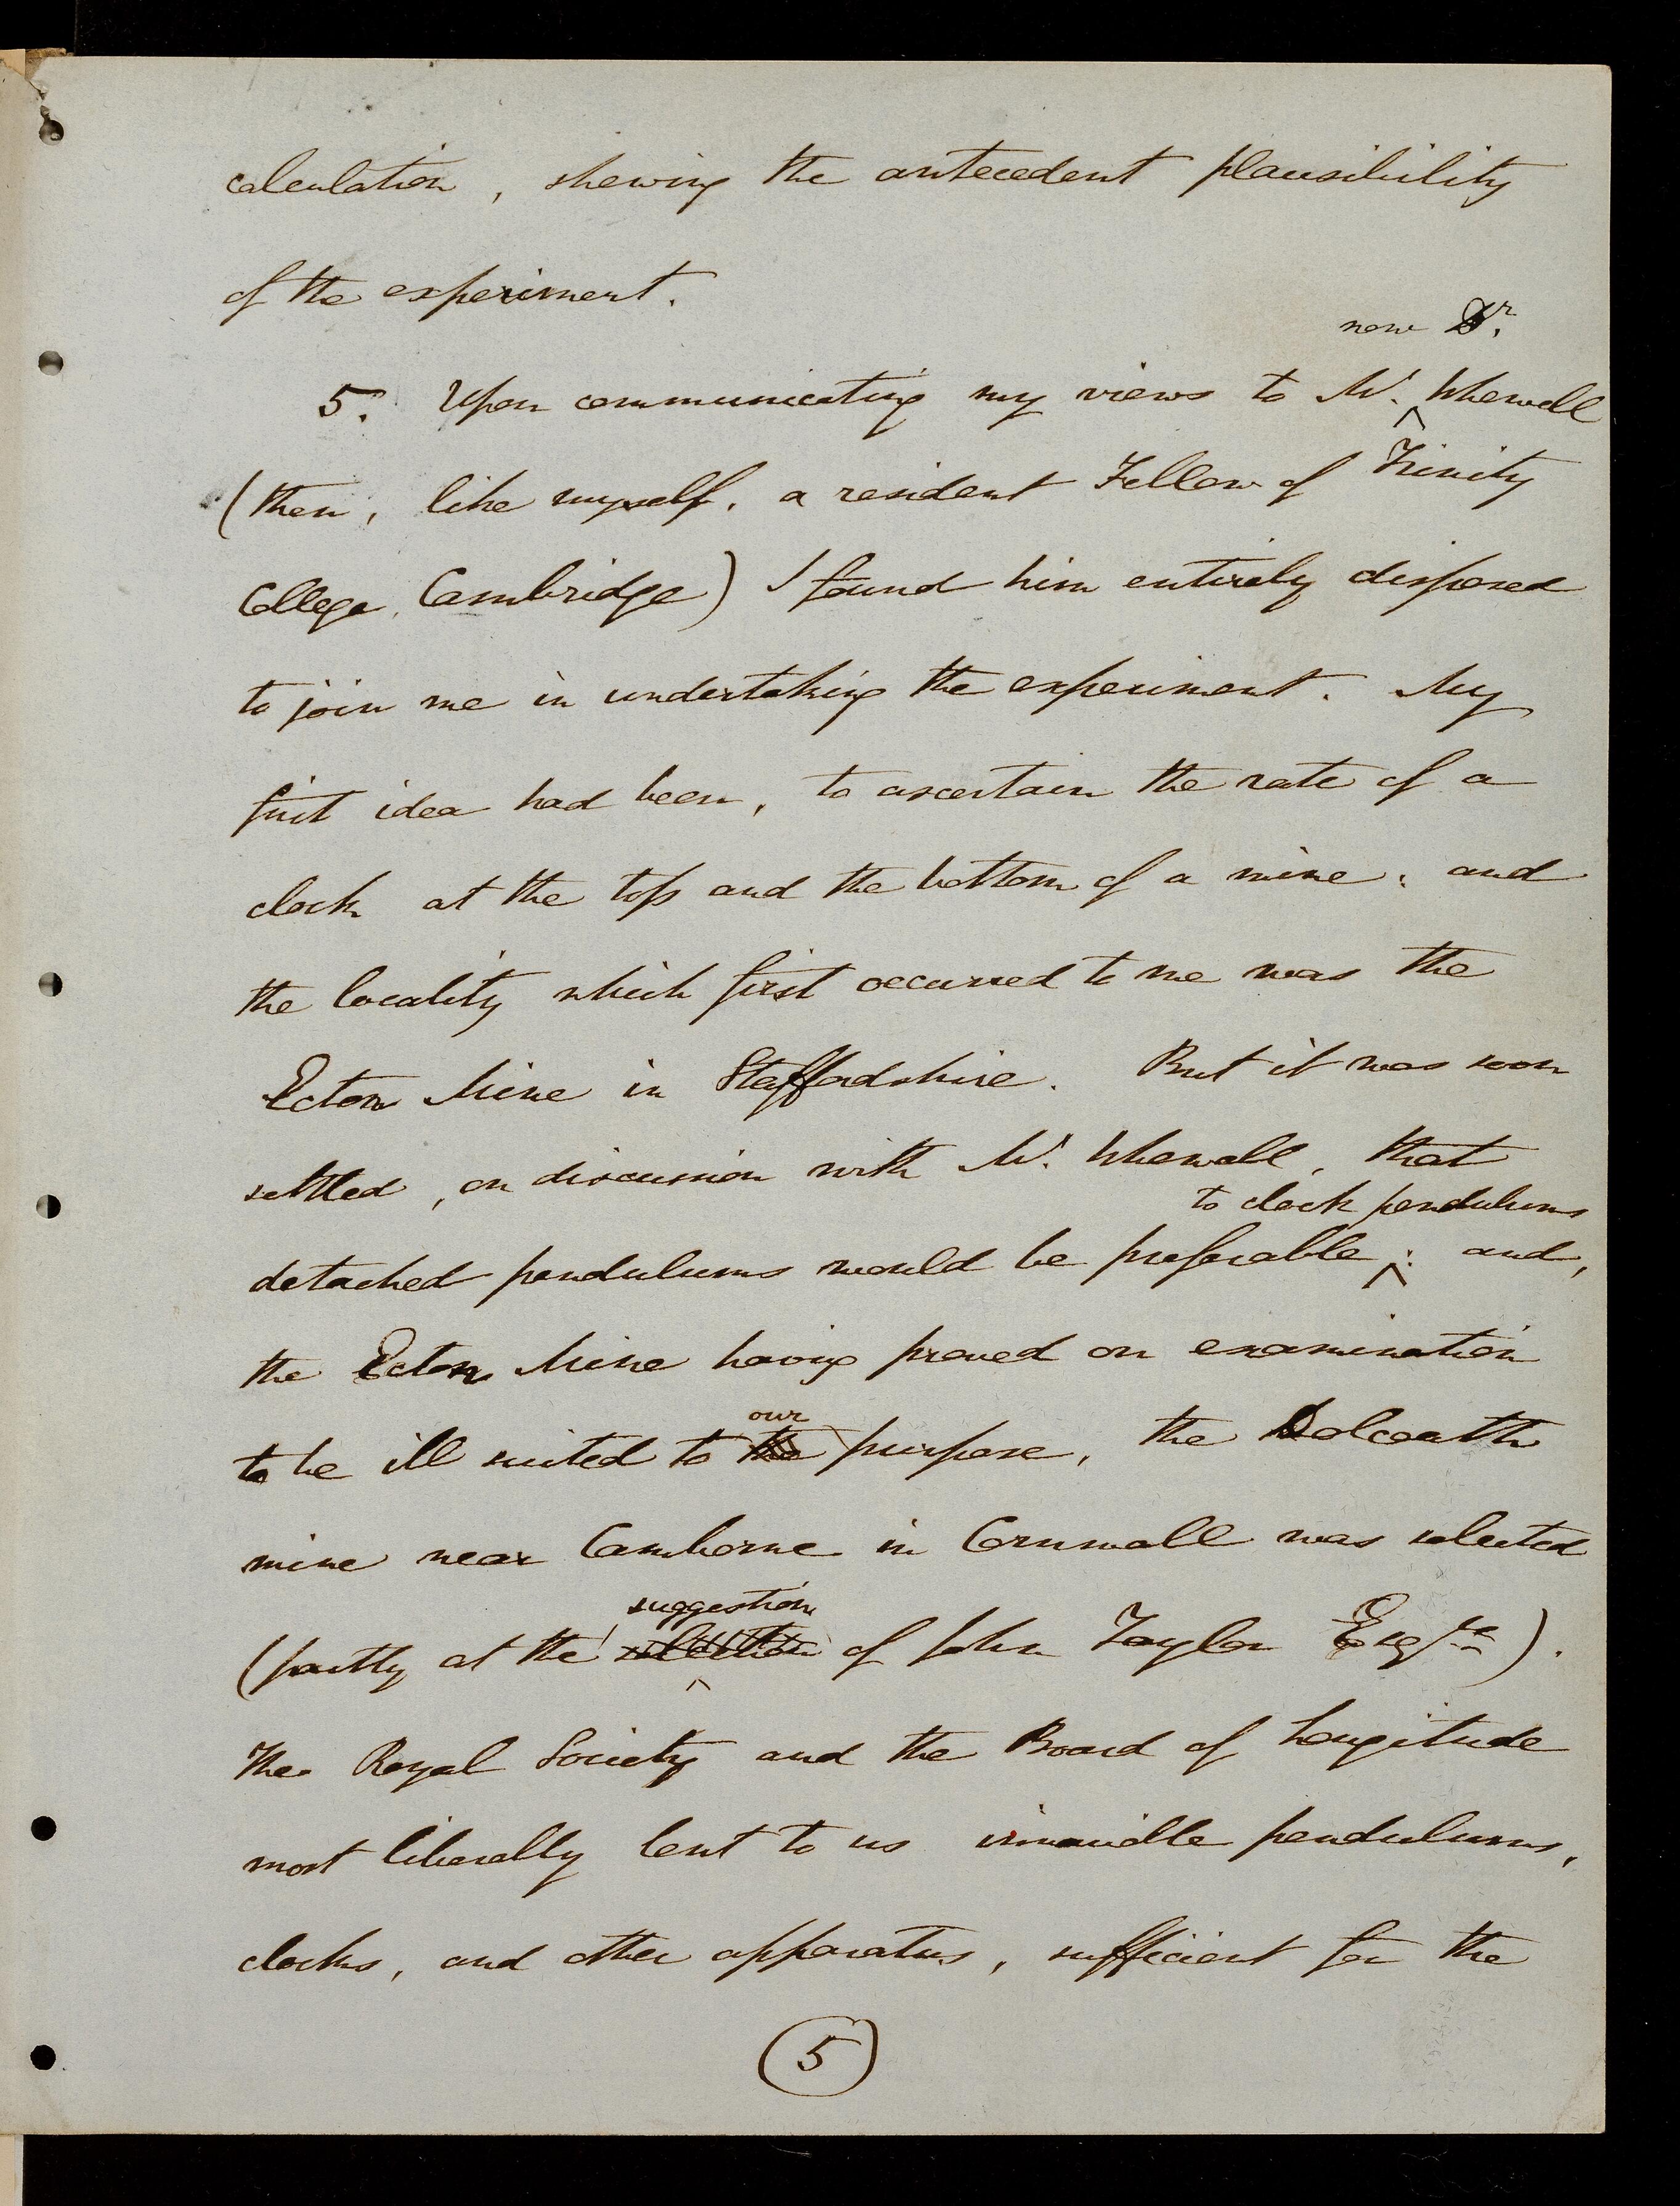 calculation, shewing the antecedent plausibility
of the experiment.
now Dr.
5. Upon communicating my views to Mr. Whewell
(then, like myself, a resident Fellow of Trinity
College, Cambridge) I found him entirely disposed
to join me in undertaking the experiment. My
first idea had been, to ascertain the rate of a
clock at the top and the bottom of a mine; and
the locality which first occurred to me was the
Ecton Mine in Staffordshire. But it was soon
settled, on discussion with Mr. Whewell, that
to clock pendulums
detached pendulums would be preferable; and,
the Ecton Mine having proved on examination
our
to be ill suited to the purpose, the Dolcoath
mine near Camborne in Cornwall was selected
suggestion
(partly at the of John Taylor Esqre).
The Royal Society and the Board of Longitude
most liberally lent to us invariable pendulums,
clocks, and other apparatus, sufficient for the
5